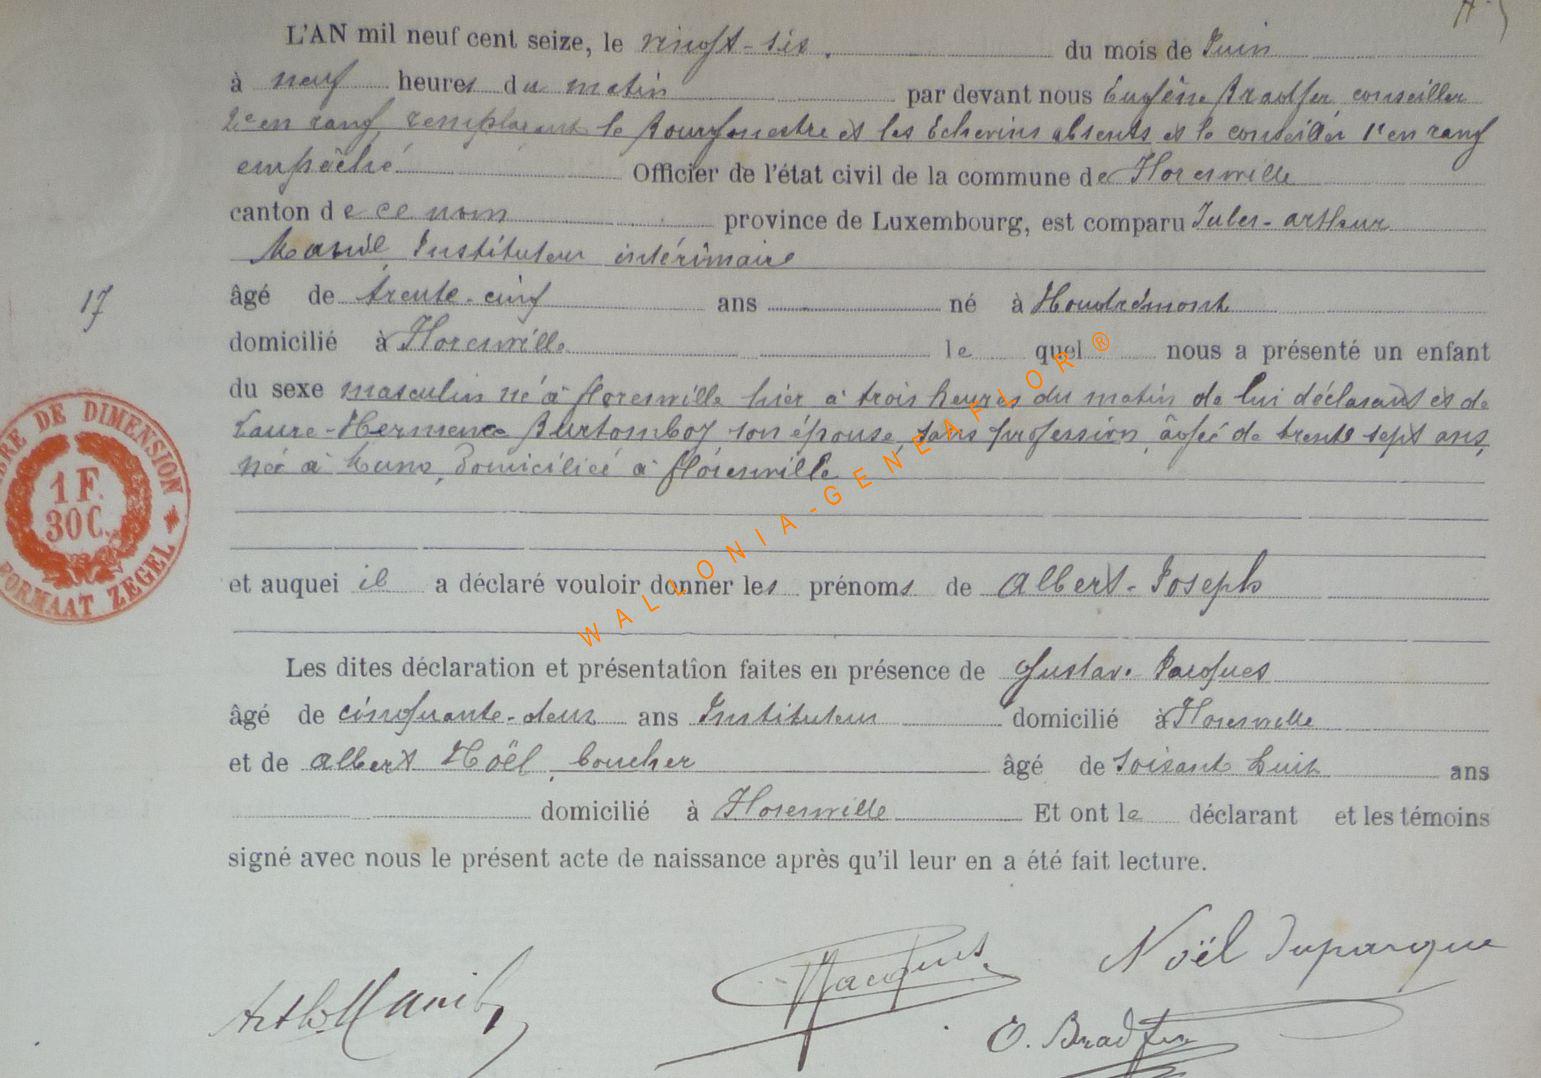 L'AN mil neuf cent seize, le vingt-six. du mois de Juin
à neuf heures du matin par devant nous Eugène Bradfer conseiller
2e en rang, remplaçant le Bourgmestre et les Echevins absents et le conseiller 1er en rang
empêché Officier de l'état civil de la commune de Florenville
canton de ce nom province de Luxembourg, est comparu Jules-arthur
Manil, Instituteur intérimaire
âgé de trente-cinq ans né à Houdrémont
17
domicilié à Florenville le quel nous a présenté un enfant
du sexe masculin né à florenville hier à trois heures du matin de lui déclarant et de
Laure-Hermence Burtomboy son épouse, sans profession, âgée de trente sept ans,
née à Muno, domiciliée à florenville
TIMBRE DE DIMENSION
1 F.
30 C.
FORMAAT ZEGEL
et auquel il a déclaré vouloir donner les prénoms de Albert-Joseph
Les dites déclaration et présentation faites en présence de Gustave Jacques
âgé de cinquante-deux ans Instituteur domicilié à Florenville
et de Albert Noël, boucher âgé de soixant huit ans
domicilié à Florenville Et ont le déclarant et les témoins
signé avec nous le présent acte de naissance après qu'il leur en a été fait lecture.
Noël Duparque
Jacques
Arth Manil
E. Bradfer
WALLONIA-GENEAFLOR®